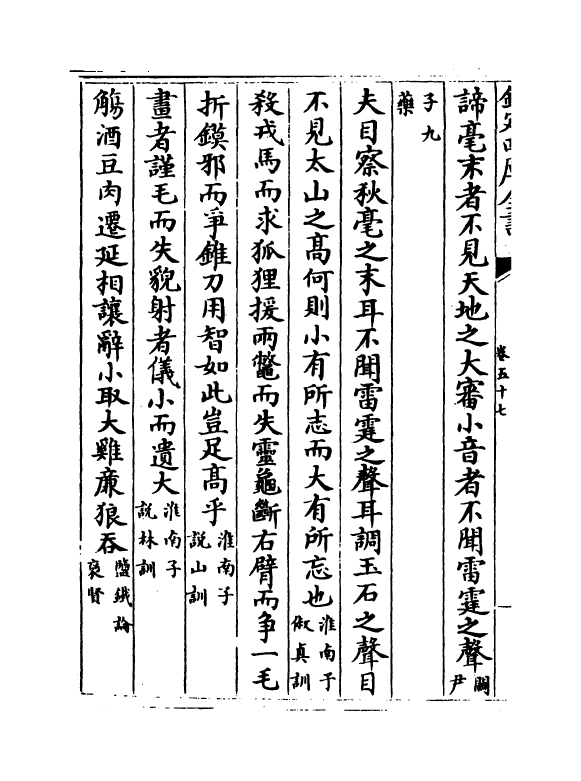 欽定四庫全書
卷五十七
諦毫末者不見天地之大審小音者不聞雷霆之聲關尹
子九藥
夫目察秋毫之末耳不聞雷霆之聲耳調玉石之聲目
不見太山之髙何則小有所志而大有所忘也淮南子俶真訓
殺戎馬而求狐狸援兩鼈而失靈龜斷右臂而爭一毛
折鏌邪而爭錐刀用智如此豈足髙乎淮南子說山訓
畫者謹毛而失貌射者儀小而遺大淮南子說林訓
觴酒豆肉遷延相讓辭小取大雞亷狼吞鹽鐵論褒賢